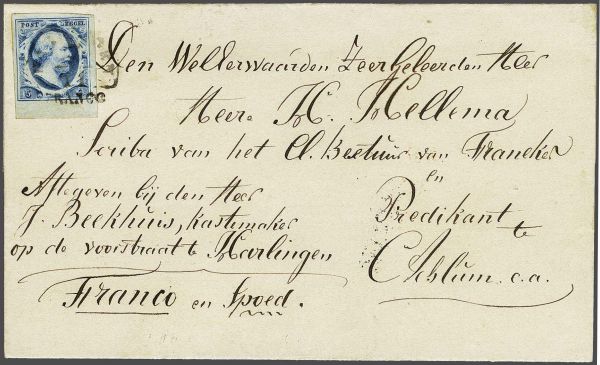 POST ZEGEL
FRANCO
Den WelEerwaarden ZeerGeleerden Heer
Heere H. Hellema
Scriba van het Cl. Bestuur van Franeker
en
Predikant te
Achlum. c.a.
Aftegeven bij den Heer
J. Beekhuis, kastemaker
op de voorstraat te Harlingen
Franco en Spoed.